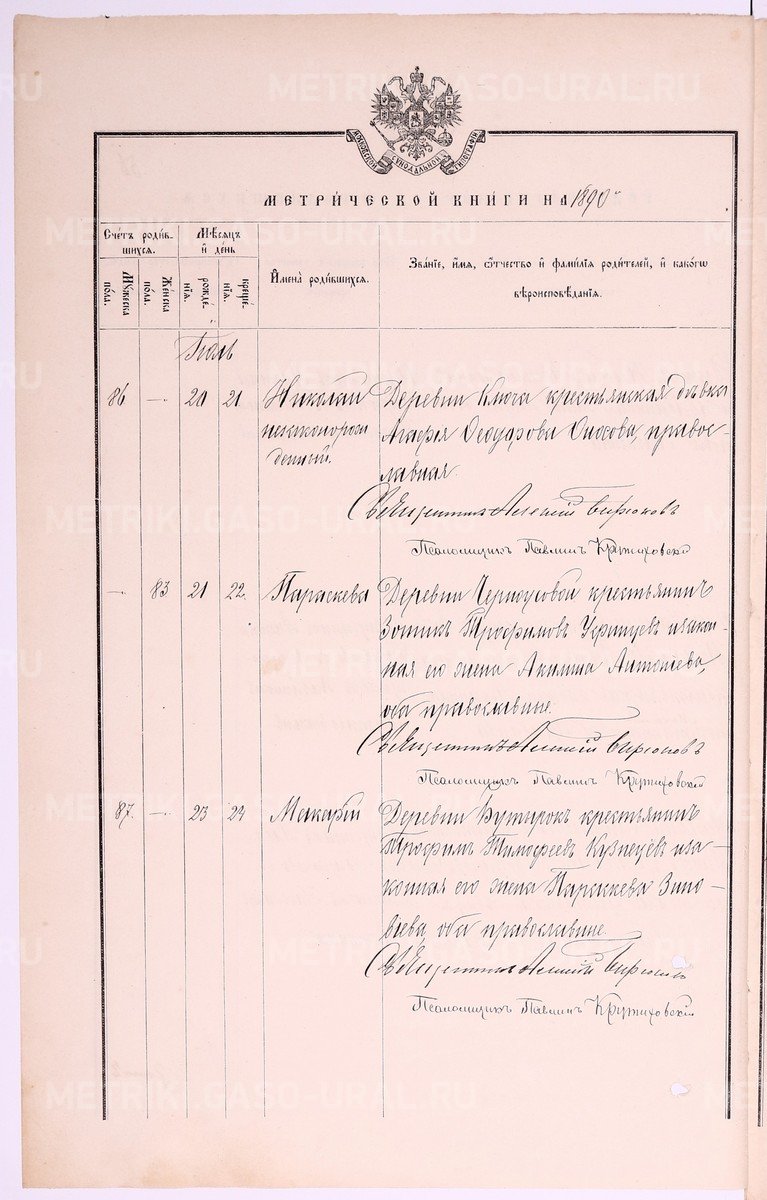 МОСКОВСКОЙ СѴНОДАЛЬНОЙ ТИПОГРАФІИ
МЕТРИ́ЧЕСКОЙ КНИ́ГИ НА 1890 г
Сче́тъ роди́в-
шихся.
Мѣ́сяцъ
и҆ де́нь
Му́жеска
по́ла.
Же́нска
по́ла.
рожде́-
нїѧ.
креще́-
нїѧ.
И҆мена̀ роди́вшихся.
Зва́нїе, и҆́мѧ, ѻ҆́тчество и҆ фамі́лїѧ роди́телей, и҆ како́гѡ
вѣроисповѣ́данїѧ.
Іюль
86 — 20 21 Николай Деревни Ключа крестьянская дѣвка
незаконорож Агафья Ѳеодорова, правос-
денный. лавная.
Священникъ Алексій Бирюковъ
Псаломщикъ Павлинъ Кружиховскій
— 83 21 22. Параскева Деревни Черноусовой крестьянинъ
Зотикъ Трофимовъ и закон-
ная его жена Антонѣева,
оба православные.
Священникъ Алексій Бирюковъ
Псаломщикъ Павлинъ Кружиховскій
87. — 23 24 Макарій Деревни Бутырокъ крестьянинъ
Трофимъ Тимофеевъ Кузнецовъ и за-
конная его жена Параскева Зино-
вьева, оба православные.
Священникъ Алексій Бирюковъ
Псаломщикъ Павлинъ Кружиховскій
METRIKI.GASO-URAL.RU